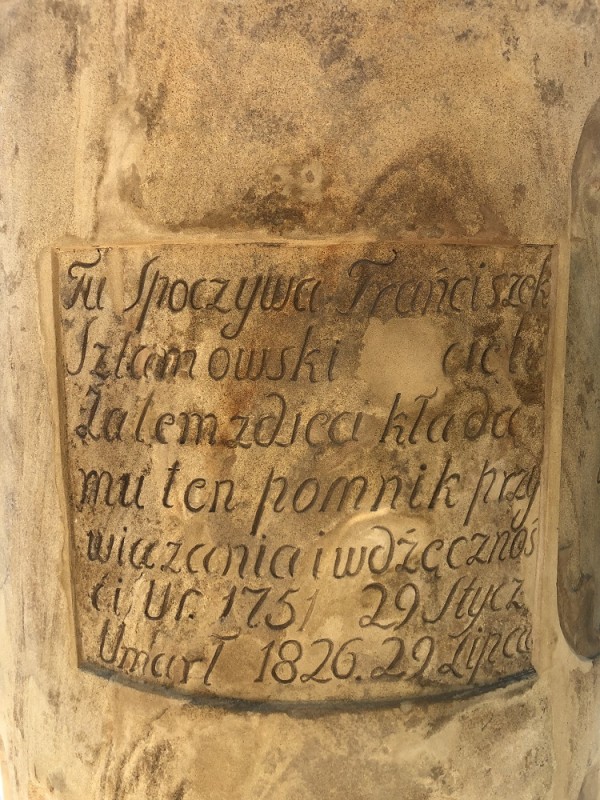 Tu Spoczywa Frańciszek
Szłamowski
Żalem zdięci kłada
mu ten pomnik przy
wiązania i wdźęcznoś
ci, Ur. 1751 29 Stycz.
Umarł 1826. 29 Lipca